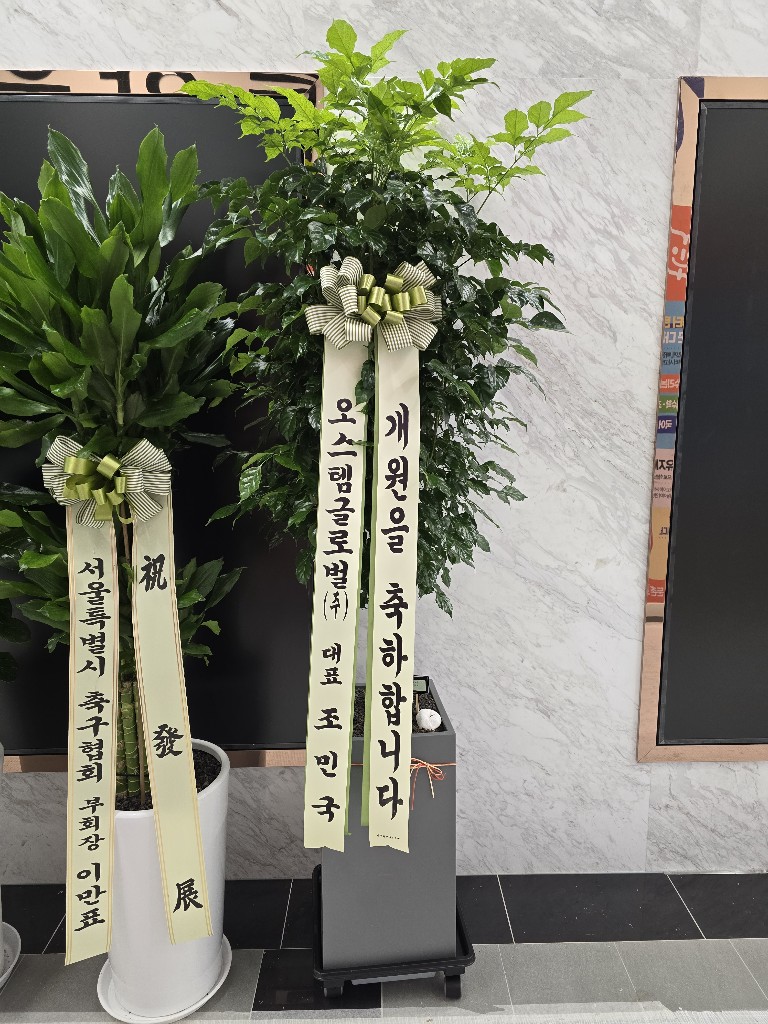 서울특별시 축구협회 부회장 이만표
祝 發 展
오스템글로벌(주) 대표 조민국
개원을 축하합니다